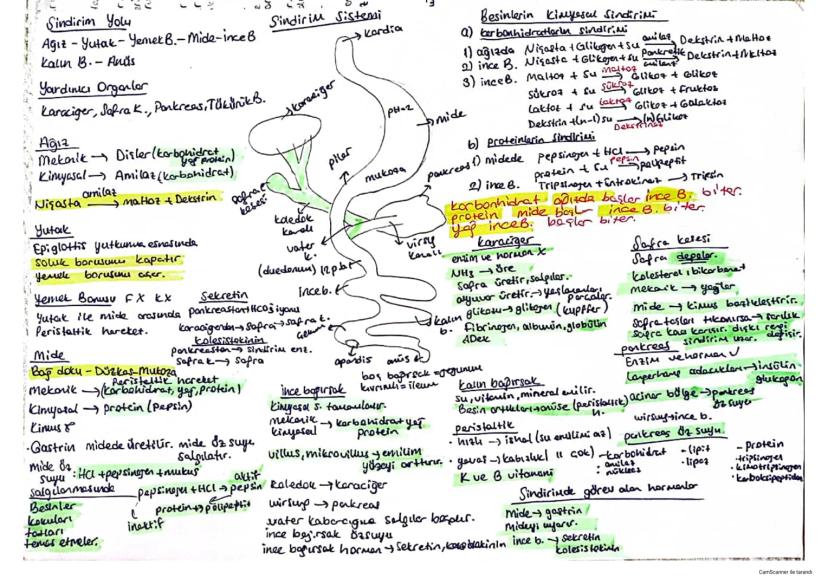 Sindirim Yolu
Ağız - Yutak - Yemek B. - Mide - İnce B
Kalın B. - Anüs
Yardımcı Organlar
Karaciğer, Safra K., Pankreas, Tükürük B.
Ağız
Mekanik → Dişler (karbonhidrat
yağ protein)
Kimyasal → Amilaz (karbonhidrat)
amilaz
Nişasta → maltoz + Dekstrin
Yutak
Epiglottis yutkunma esnasında
soluk borusunu kapatır
yemek borusunu açar.
Yemek Borusu F X K X
Yutak ile mide arasında
Peristaltik hareket.
Sekretin
pankreastan HCO3 iyonu
karaciğerden → safra → safra k.
kolesistokinin
Pankreastan → sindirim enz.
safra k → safra
Mide
Bağ doku - Düzkas - Mukoza
Peristaltik hareket
Mekanik → (karbohidrat, yağ, protein)
Kimyasal → protein (pepsin)
Kimus
Gastrin midede üretilir. mide öz suyu
salgılatır.
Mide öz
suyu : HCl + pepsinojen + mukus
salgılanmasında
Besinler
kokuları
tatları
temas etmeler.
aktif
pepsinojen + HCl → pepsin
inaktif
protein → polipeptit
Sindirim Sistemi
kardia
karaciğer
PH=2
mide
pilor
mukoza
pankreas
safra kesesi
koledok kanalı
vater k.
virsung kanalı
(duedenum) 12 p.b
ince b.
kalın b.
apandis
anüs
boş bağırsak = jejunum
kıvrımlı = ileum
ince bağırsak
Kimyasal s. tamamlanır.
mekanik
kimyasal → karbohidrat yağ
protein
villus, mikrovillus → emilim
yüzeyi arttırır.
Koledok → karaciğer
wirsung → pankreas
vater kabarcığına salgılar boşalır.
ince bağırsak özsuyu
ince bağırsak hormon → Sekretin, kolesistokinin
Besinlerin Kimyasal Sindirimi
a) karbonhidratların sindirimi
1) ağızda Nişasta + Glikojen + su amilaz → Dekstrin + Maltoz
2) ince B. Nişasta + Glikojen + su pankreatik amilaz → Dekstrin + Maltoz
3) ince B. Maltoz + Su maltaz → Glikoz + Glikoz
Sükroz + su sükraz → Glikoz + fruktoz
Laktoz + su laktaz → Glikoz + Galaktoz
Dekstrin + (n-1) su Dekstrinaz → (n) Glikoz
b) proteinlerin sindirimi
1) midede pepsinojen + HCl → Pepsin
protein + su pepsin → polipeptit
2) ince B. Tripsinojen + Entrokinaz → Tripsin
karbonhidrat ağızda başlar ince B. biter.
protein mide başlar ince B. biter.
yağ ince B. başlar biter.
karaciğer
enzim ve hormon X
NH3 → üre
Safra üretir, salgılar.
alyuvar üretir → yaşlananları
parçalar.
glikoz → glikojen (kupffer)
Fibrinojen, albumin, globülin
ADEK
Safra kesesi
Safra depolar
kolesterol : bikarbonat
mekanik → yağlar
mide → kimus bazikleştirir.
safra taşları tıkanırsa → sarılık
Safra kana karışır. dışkı rengi
değişir.
pankreas sindirim uzar.
Enzim ve hormon ✓
Langerhans adacıkları → insülin
glukagon
acinar bölge → pankreas
öz suyu
wirsung → ince b.
pankreas öz suyu.
karbonhidrat
: amilaz
nükleaz
lipit
lipaz
protein
tripsinojen
kimotripsinojen
karboksipeptidaz
kalın bağırsak
su, vitamin, mineral emilir.
Besin artıkları → anüse (peristaltik)
h.
peristaltik
hızlı → ishal (su emilimi az)
yavaş → kabızlık (" çok)
K ve B vitamini
Sindirimde görev alan hormonlar
Mide → gastrin
Mideyi uyarır.
ince b. → sekretin
kolesistokinin
CamScanner ile tarandı